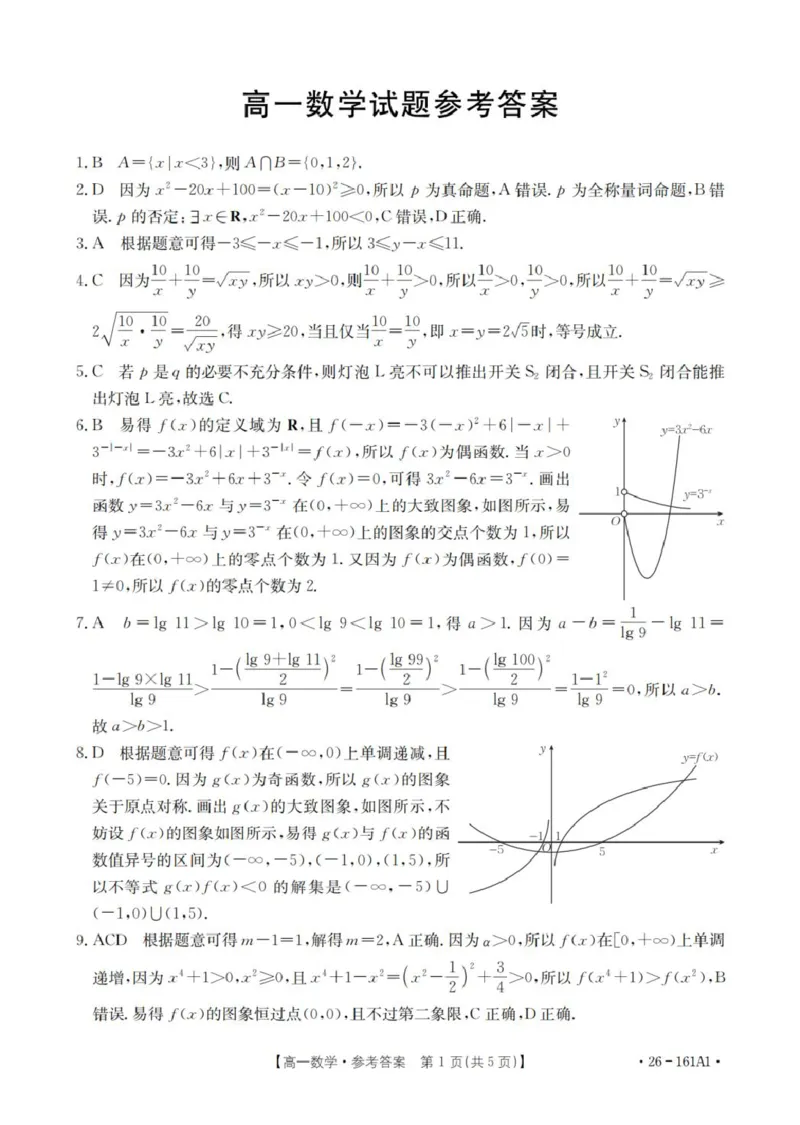 高一数学试题参考答案
1.B A={x|x<3},则A∩B={0,1,2}.
2.D 因为x²-20x+100=(x-10)²≥0,所以p为真命题,A错误.p为全称量词命题,B错
误.p的否定:∃x∈R,x²-20x+100<0,C错误,D正确.
3.A 根据题意可得-3≤-x≤-1,所以3≤y-x≤11.
4.C 因为10/x+10/y=√xy,所以xy>0,则10/x+10/y>0,所以10/x>0,10/y>0,所以10/x+10/y=√xy≥
2√(10/x·10/y)=20/√xy,得xy≥20,当且仅当10/x=10/y,即x=y=2√5时,等号成立.
5.C 若p是q的必要不充分条件,则灯泡L亮不可以推出开关S₂闭合,且开关S₂闭合能推
出灯泡L亮,故选C.
6.B 易得f(x)的定义域为R,且f(-x)=-3(-x)²+6|-x|+
3^(-|-x|)=-3x²+6|x|+3^(-|x|)=f(x),所以f(x)为偶函数.当x>0
时,f(x)=-3x²+6x+3^(-x).令f(x)=0,可得3x²-6x=3^(-x).画出
函数y=3x²-6x与y=3^(-x)在(0,+∞)上的大致图象,如图所示,易
得y=3x²-6x与y=3^(-x)在(0,+∞)上的图象的交点个数为1,所以
f(x)在(0,+∞)上的零点个数为1.又因为f(x)为偶函数,f(0)=
1≠0,所以f(x)的零点个数为2.
y
y=3x²-6x
1
y=3^(-x)
O
x
7.A b=lg 11>lg 10=1,0<lg 9<lg 10=1,得a>1.因为a-b=1/lg 9-lg 11=
(1-lg 9×lg 11)/lg 9>(1-((lg 9+lg 11)/2)²)/lg 9=(1-(lg 99/2)²)/lg 9>(1-(lg 100/2)²)/lg 9=(1-1²)/lg 9=0,所以a>b.
故a>b>1.
8.D 根据题意可得f(x)在(-∞,0)上单调递减,且
f(-5)=0.因为g(x)为奇函数,所以g(x)的图象
关于原点对称.画出g(x)的大致图象,如图所示,不
妨设f(x)的图象如图所示,易得g(x)与f(x)的函
数值异号的区间为(-∞,-5),(-1,0),(1,5),所
以不等式g(x)f(x)<0的解集是(-∞,-5)∪
(-1,0)∪(1,5).
y
y=f(x)
-1
1
-5
O
5
x
9.ACD 根据题意可得m-1=1,解得m=2,A正确.因为α>0,所以f(x)在[0,+∞)上单调
递增,因为x⁴+1>0,x²≥0,且x⁴+1-x²=(x²-1/2)²+3/4>0,所以f(x⁴+1)>f(x²),B
错误.易得f(x)的图象恒过点(0,0),且不过第二象限,C正确,D正确.
【高一数学·参考答案 第1页(共5页)】
·26-161A1·